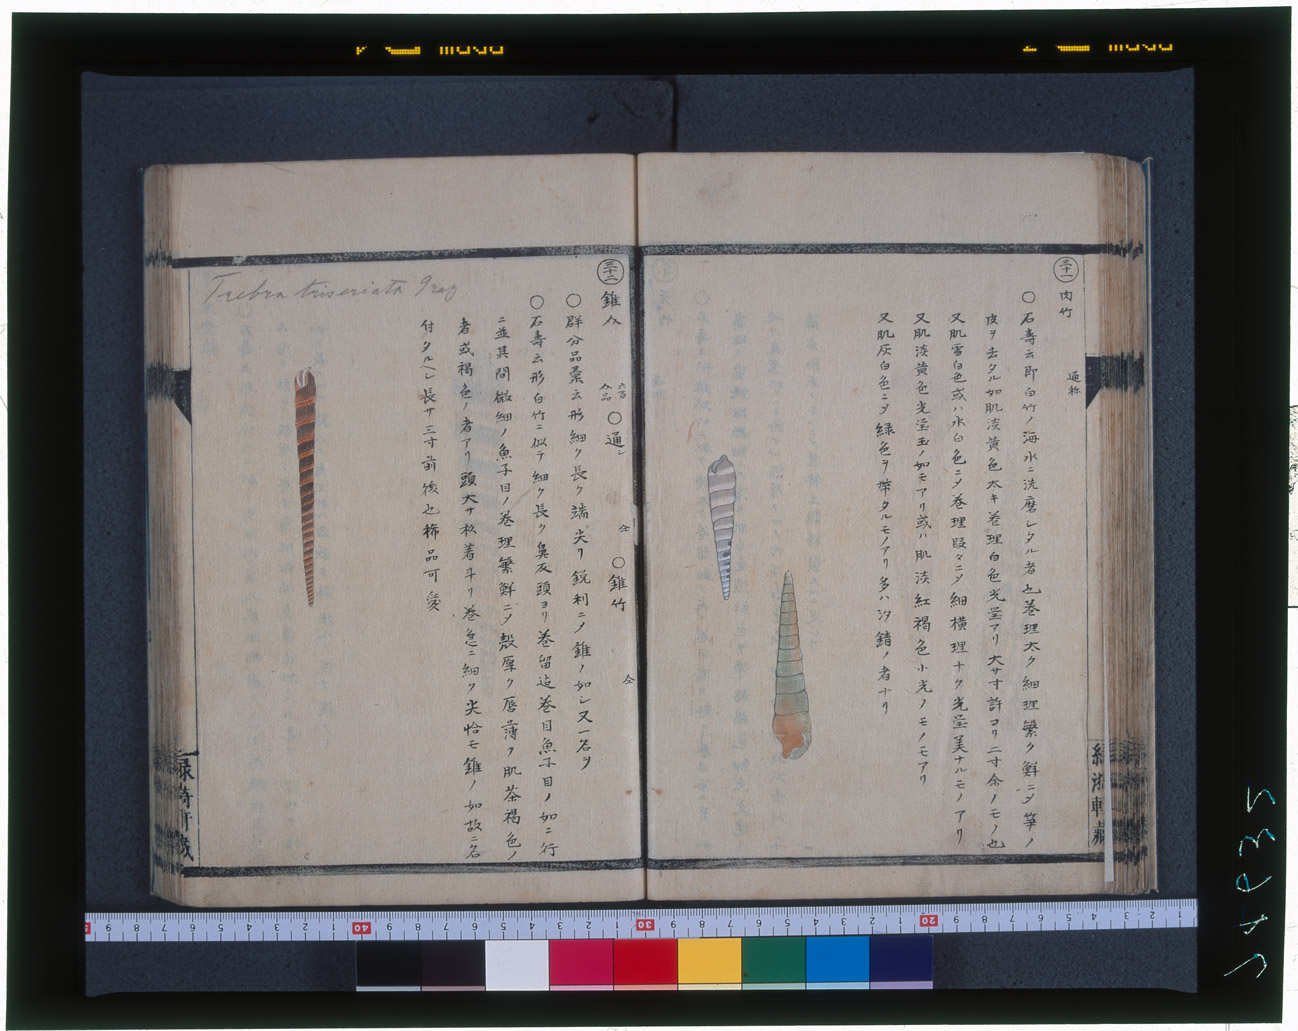 三十一
肉竹 通称
○石壽云即白竹ノ海水ニ洗磨シタル者也巻理太ク細理繁ク鮮ニメ筆ノ
皮ヲ去タル如肌淡黄色太キ巻理白色光瑩アリ大サ寸許ヨリ二寸余ノモノ也
又肌雪白色或ハ水白色ニメ巻理段々ニメ細横理ナク光瑩美ナルモノアリ
又肌淡黄色光瑩玉ノ如モアリ或ハ肌淡紅褐色小光ノモノモアリ
又肌灰白色ニメ緑色ヲ帯タルモノアリ多ハ汐錆ノ者ナリ
三十二
錐 六百八品 ○通シ 仝 ○錐竹 仝
○群分品彙云形細ク長ク端尖リ鋭利ニメ錐ノ如シ又一名ヲ
○石壽云形白竹ニ似テ細ク長ク鼻反頭ヨリ巻留迄巻目魚子目ノ如ニ行
ニ並其間微細ノ魚子目ノ巻理繁鮮ニメ殻厚ク唇薄ク肌茶褐色ノ
者或褐色ノ者アリ頭大サ杉着斗リ巻急ニ細ク尖恰モ錐ノ如故ニ名
付タルヘシ長サ三寸前後也稀品可愛
Trebra triseriata Gray
緑漪軒蔵
20
30
40